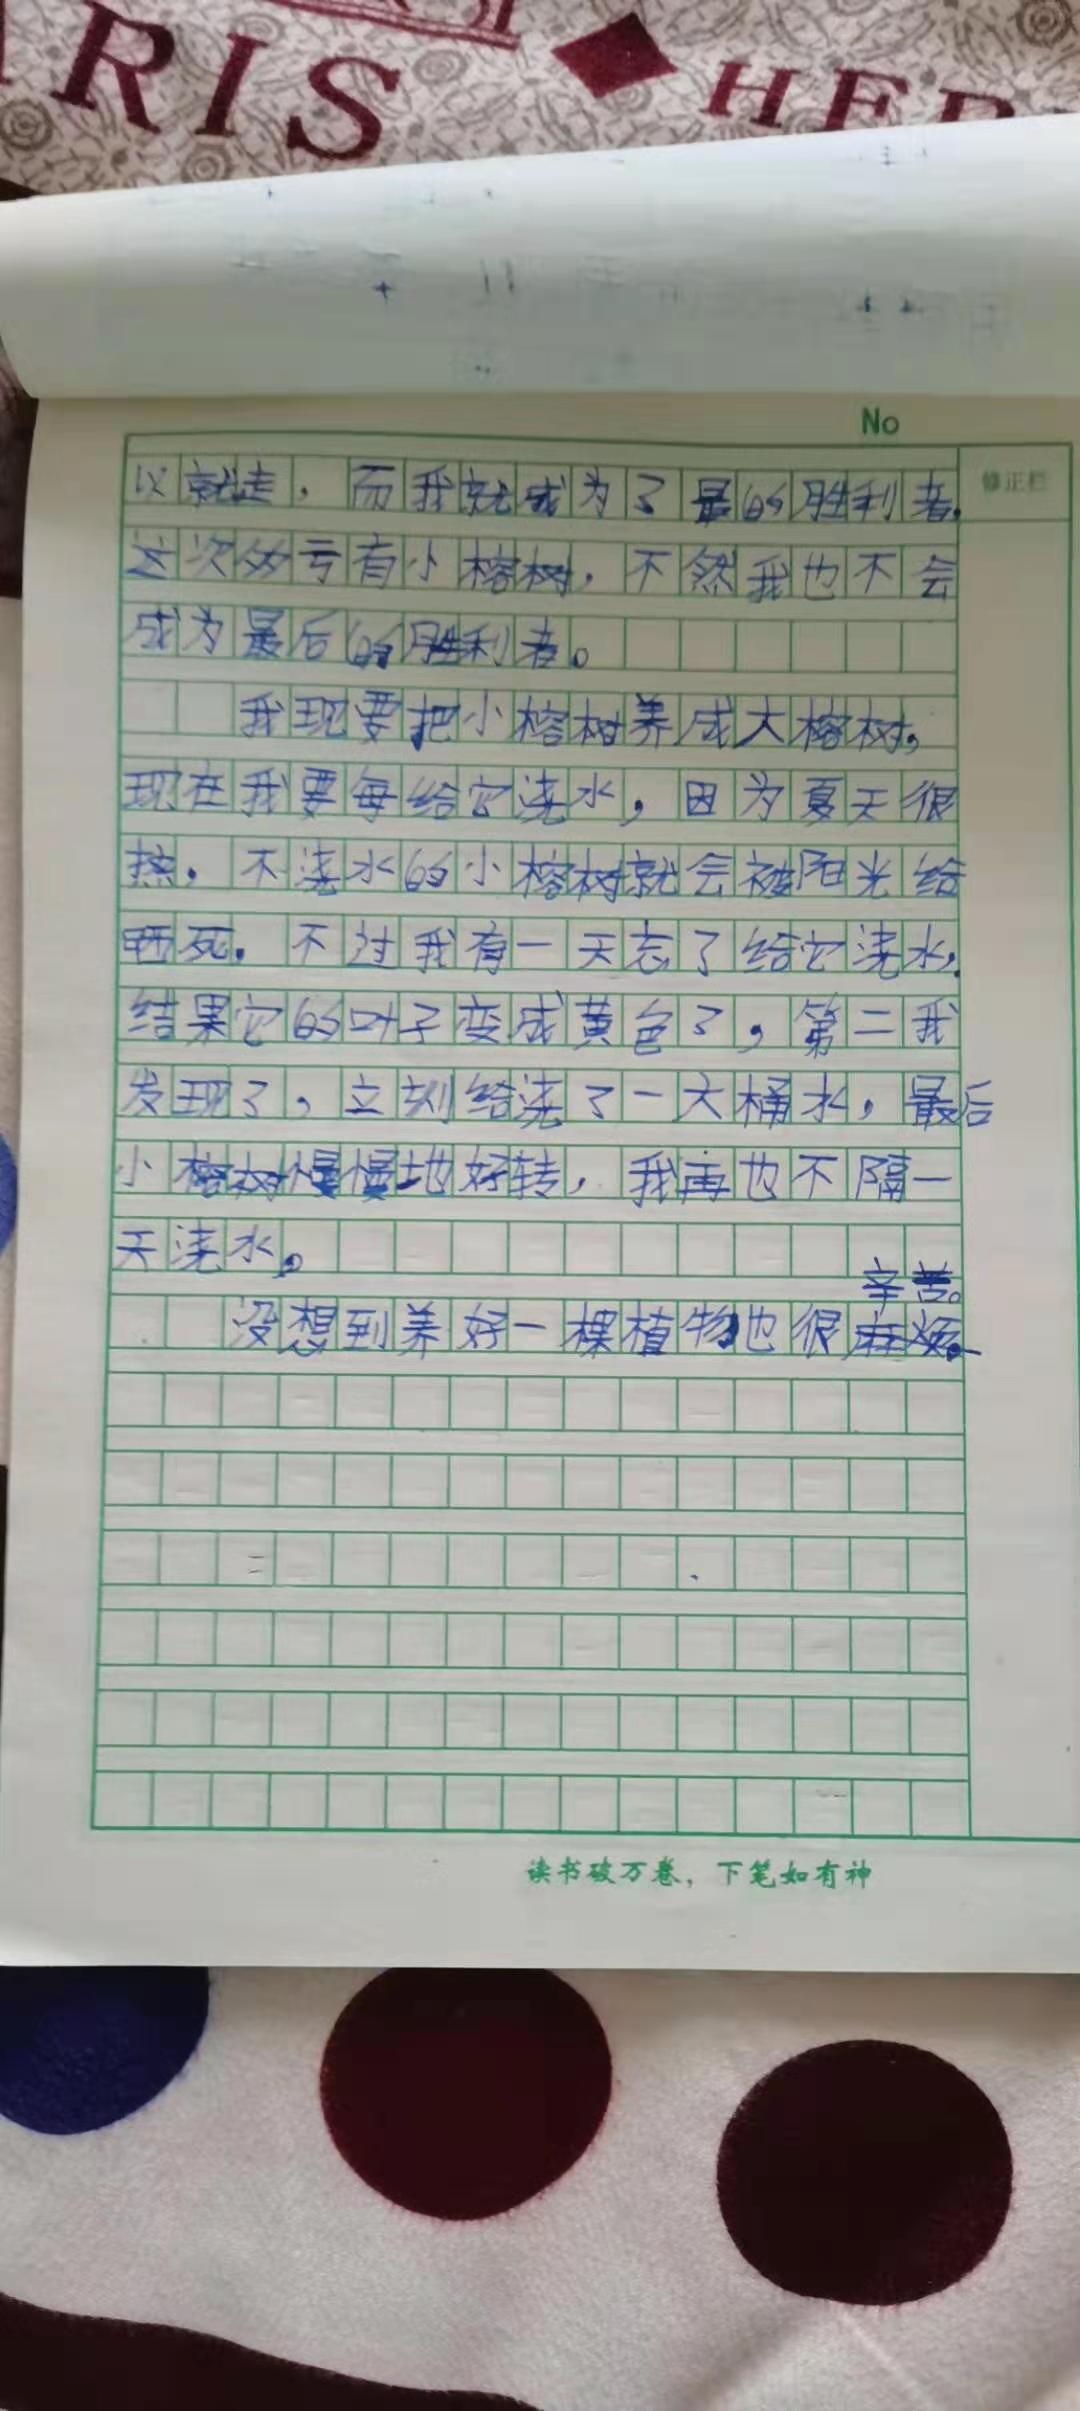 RIS
HER
No
修正栏
以就走，而我就成为了最的胜利者。
这次多亏有小榕树，不然我也不会
成为最后的胜利者。
我现要把小榕树养成大榕树，
现在我要每给它浇水，因为夏天很
热，不浇水的小榕树就会被阳光给
晒死。不过我有一天忘了给它浇水，
结果它的叶子变成黄色了，第二我
发现了，立刻给浇了一大桶水，最后
小榕树慢慢地好转，我再也不隔一
天浇水。
辛苦。
没想到养好一棵植物也很麻烦。
读书破万卷，下笔如有神